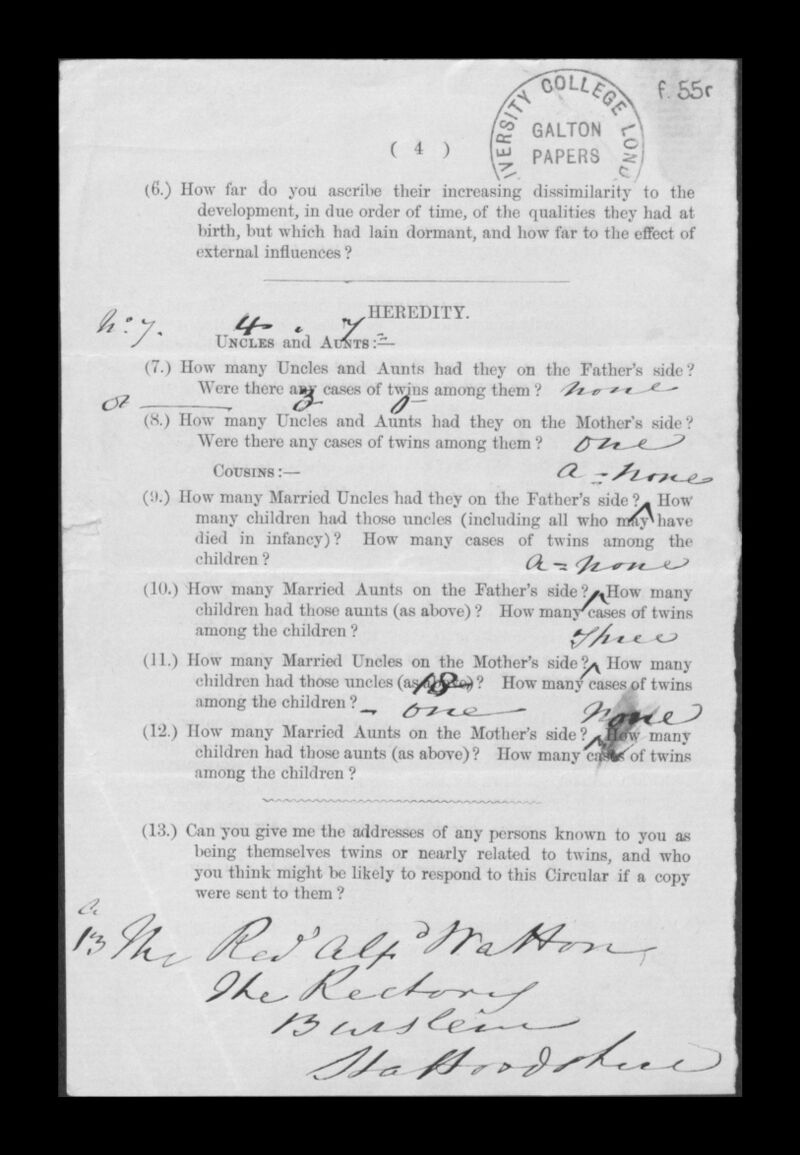 f. 55r
UNIVERSITY COLLEGE LOND
GALTON
PAPERS
( 4 )
(6.) How far do you ascribe their increasing dissimilarity to the
development, in due order of time, of the qualities they had at
birth, but which had lain dormant, and how far to the effect of
external influences?
HEREDITY.
No 7. 4 7
UNCLES and AUNTS:—
(7.) How many Uncles and Aunts had they on the Father's side?
Were there any cases of twins among them? none
3
(8.) How many Uncles and Aunts had they on the Mother's side?
Were there any cases of twins among them? one
COUSINS:— a = none
(9.) How many Married Uncles had they on the Father's side? How
many children had those uncles (including all who may have
died in infancy)? How many cases of twins among the
children? a = none
(10.) How many Married Aunts on the Father's side? How many
children had those aunts (as above)? How many cases of twins
among the children? Three
(11.) How many Married Uncles on the Mother's side? How many
children had those uncles (as above)? 18 How many cases of twins
among the children? - one none
(12.) How many Married Aunts on the Mother's side? How many
children had those aunts (as above)? How many cases of twins
among the children?
(13.) Can you give me the addresses of any persons known to you as
being themselves twins or nearly related to twins, and who
you think might be likely to respond to this Circular if a copy
were sent to them?
a
13 The Revd Alfd Watton
The Rectory
Burslem
Staffordshire